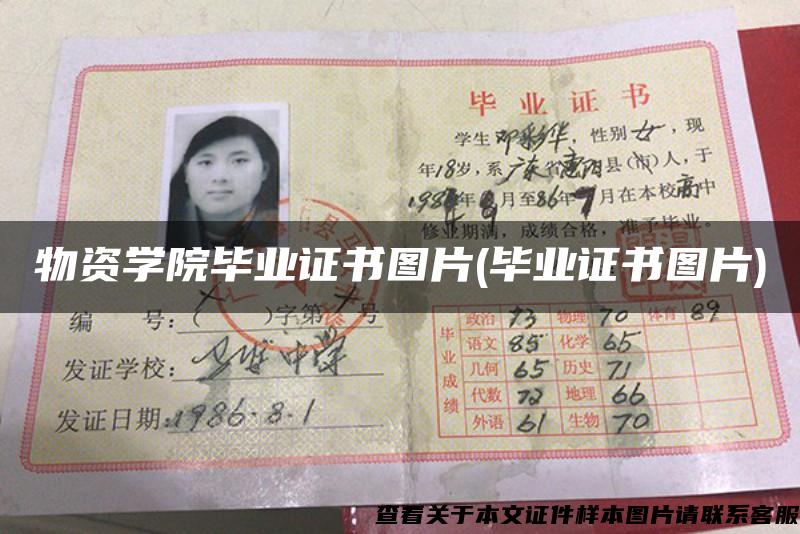 毕业证书
学生邓彩华，性别女，现
年18岁，系广东省惠阳县(市)人，于
月至86年7月在本校高中
修业期满，成绩合格，准予毕业。
物资学院毕业证书图片(毕业证书图片)
编 号：( )字第 号
发证学校：
中学
发证日期：1986.8.1
毕业成绩
政治 73 物理 70 体育 89
语文 85 化学 65
几何 65 历史 71
代数 72 地理 66
外语 61 生物 70
查看关于本文证件样本图片请联系客服